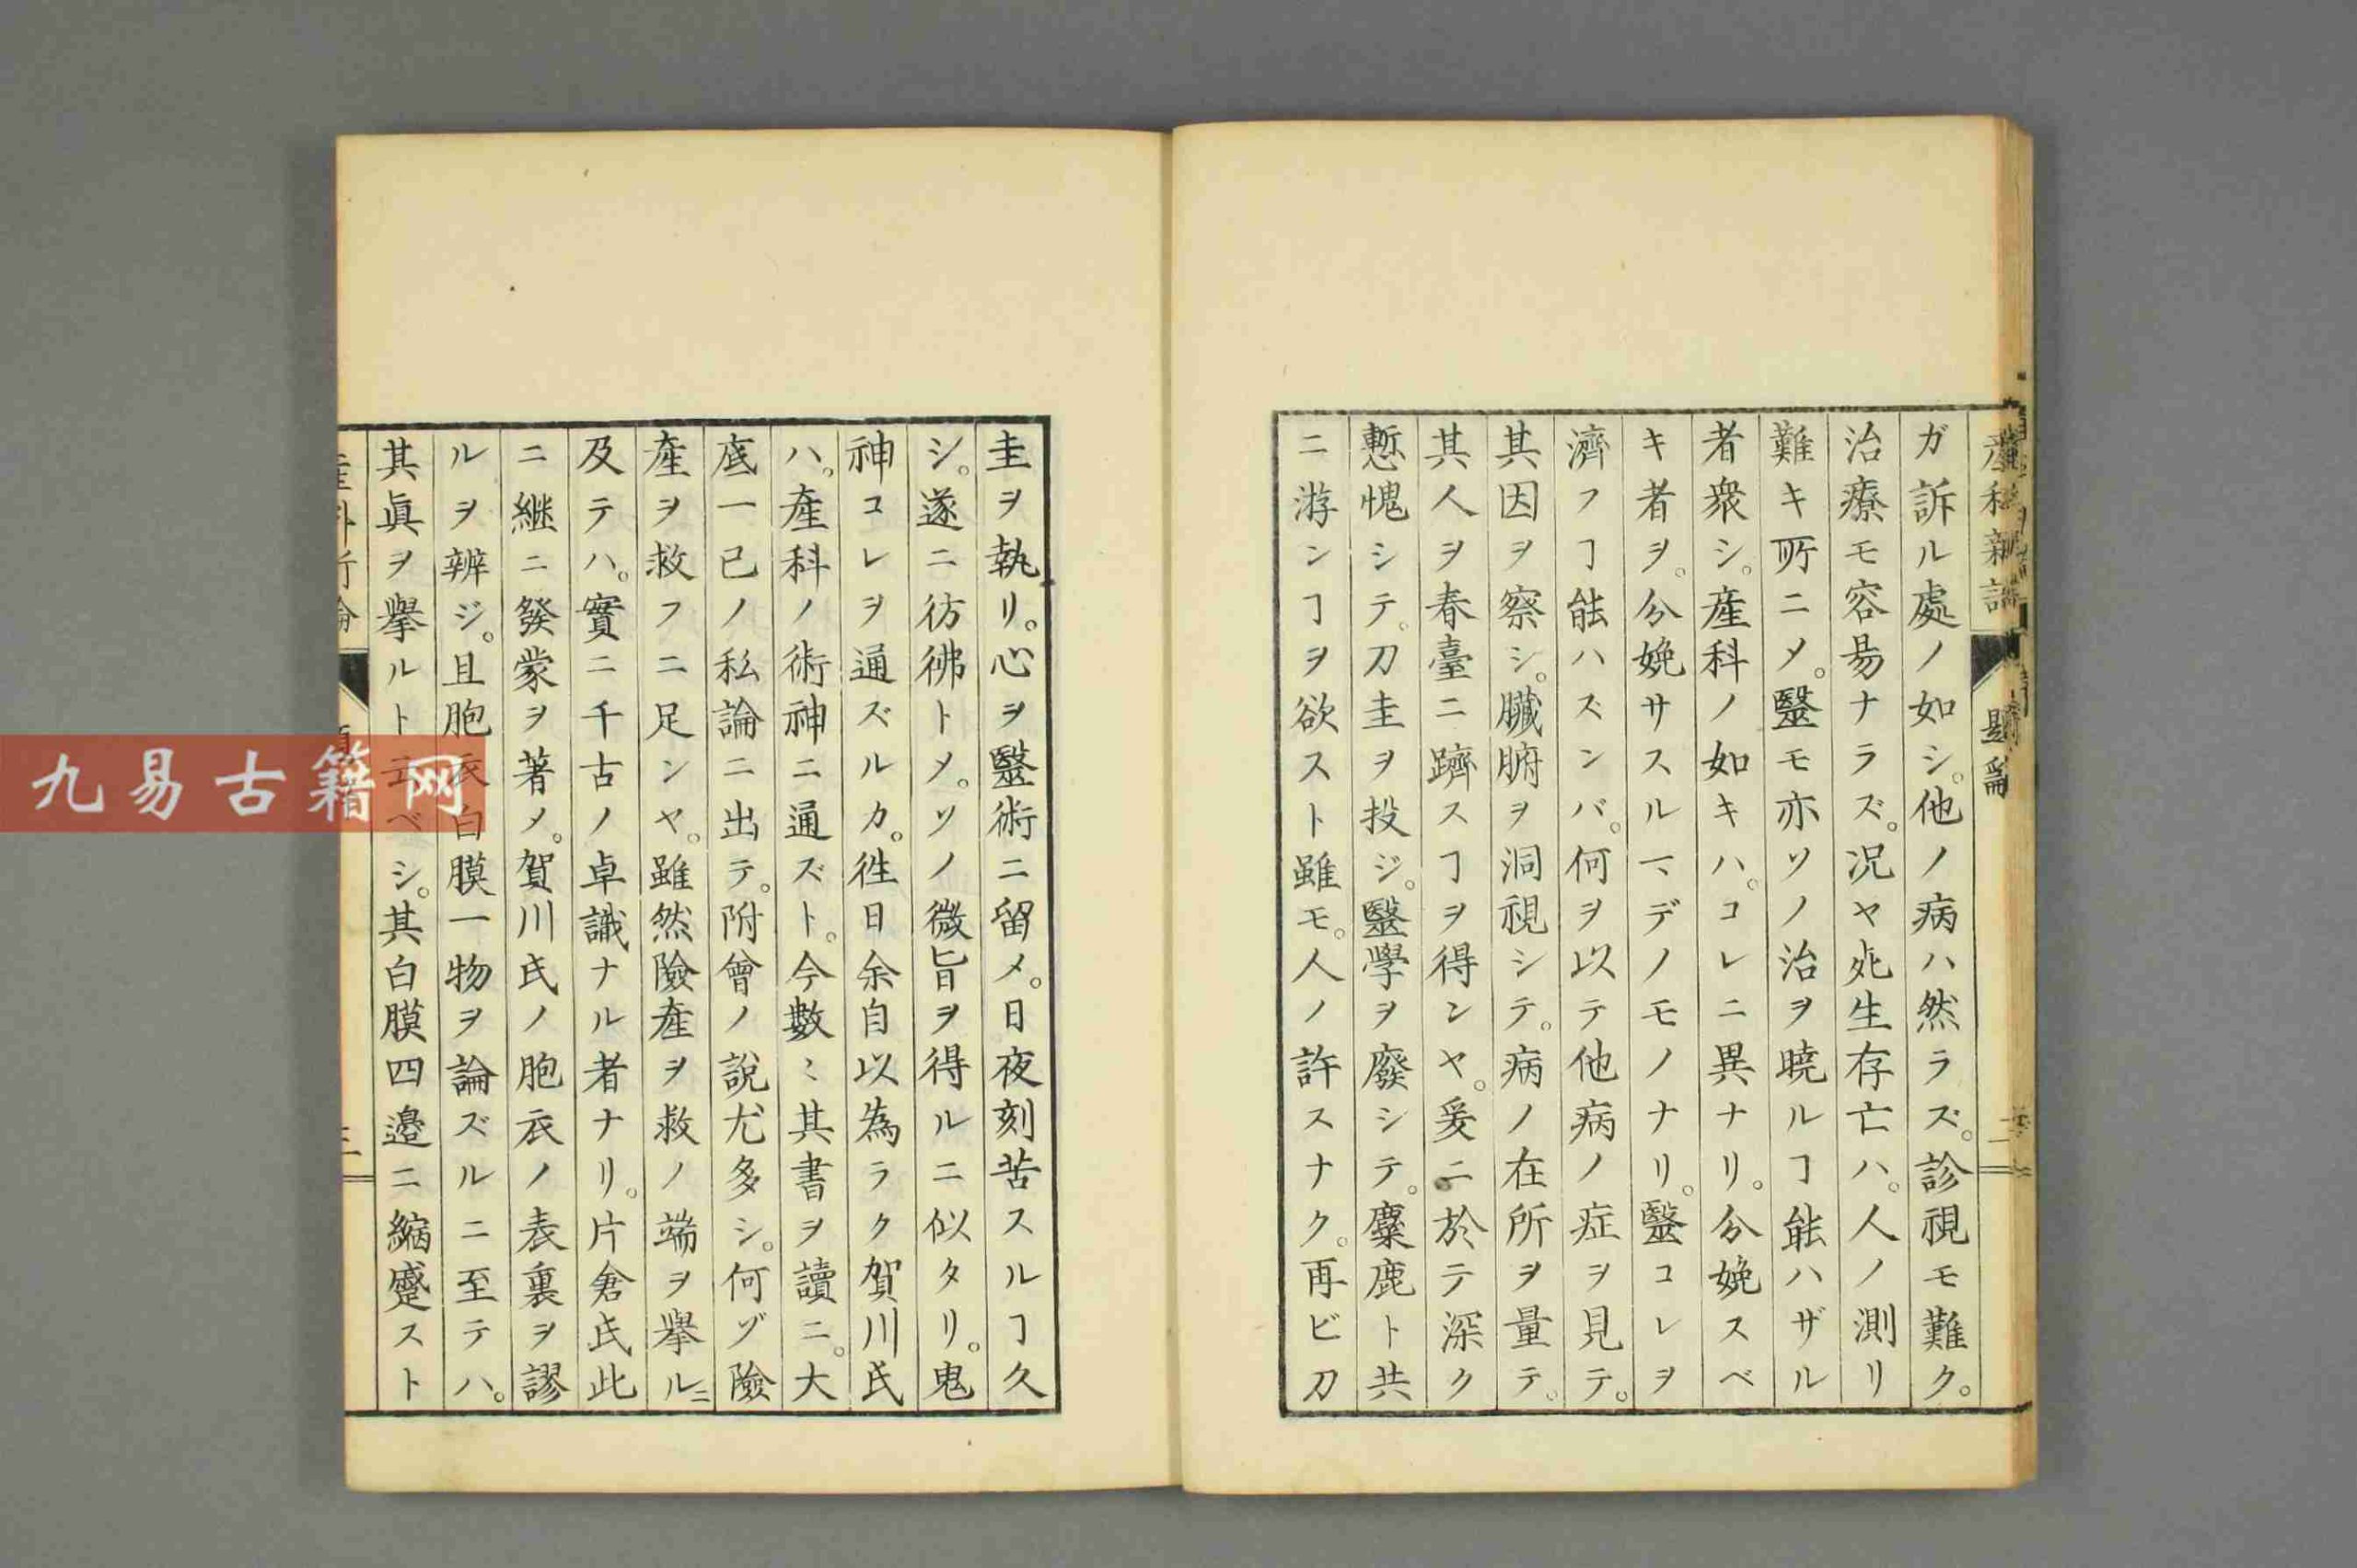 産科新論
題論
二
ガ訴ル處ノ如シ。他ノ病ハ然ラズ。診視モ難ク。
治療モ容易ナラズ。况ヤ死生存亡ハ。人ノ測リ
難キ所ニメ。醫モ亦ソノ治ヲ曉ルヿ能ハザル
者衆シ。産科ノ如キハ。コレニ異ナリ。分娩スベ
キ者ヲ。分娩サスルマデノモノナリ。醫コレヲ
濟フヿ能ハズンバ。何ヲ以テ他病ノ症ヲ見テ。
其因ヲ察シ。臓腑ヲ洞視シテ。病ノ在所ヲ量テ。
其人ヲ春臺ニ躋スヿヲ得ンヤ。爰ニ於テ深ク
慙愧シテ。刀圭ヲ投ジ。醫學ヲ廢シテ。麋鹿ト共
ニ游ンヿヲ欲スト雖モ。人ノ許スナク。再ビ刀
圭ヲ執リ。心ヲ醫術ニ留メ。日夜刻苦スルヿ久
シ。遂ニ彷彿トメ。ソノ微旨ヲ得ルニ似タリ。鬼
神コレヲ通ズルカ。徃日余自以為ラク賀川氏
ハ。産科ノ術神ニ通ズト。今數〻其書ヲ讀ニ。大
底一己ノ私論ニ出テ。附會ノ說尤多シ。何ゾ險
産ヲ救フニ足ンヤ。雖然險産ヲ救ノ端ヲ擧ルニ
及テハ。實ニ千古ノ卓識ナル者ナリ。片倉氏此
ニ継ニ發蒙ヲ著メ。賀川氏ノ胞衣ノ表裏ヲ謬
ルヲ辨ジ。且胞衣白膜一物ヲ論ズルニ至テハ。
其眞ヲ擧ルト云ベシ。其白膜四邉ニ縮蹙スト
九易古籍网